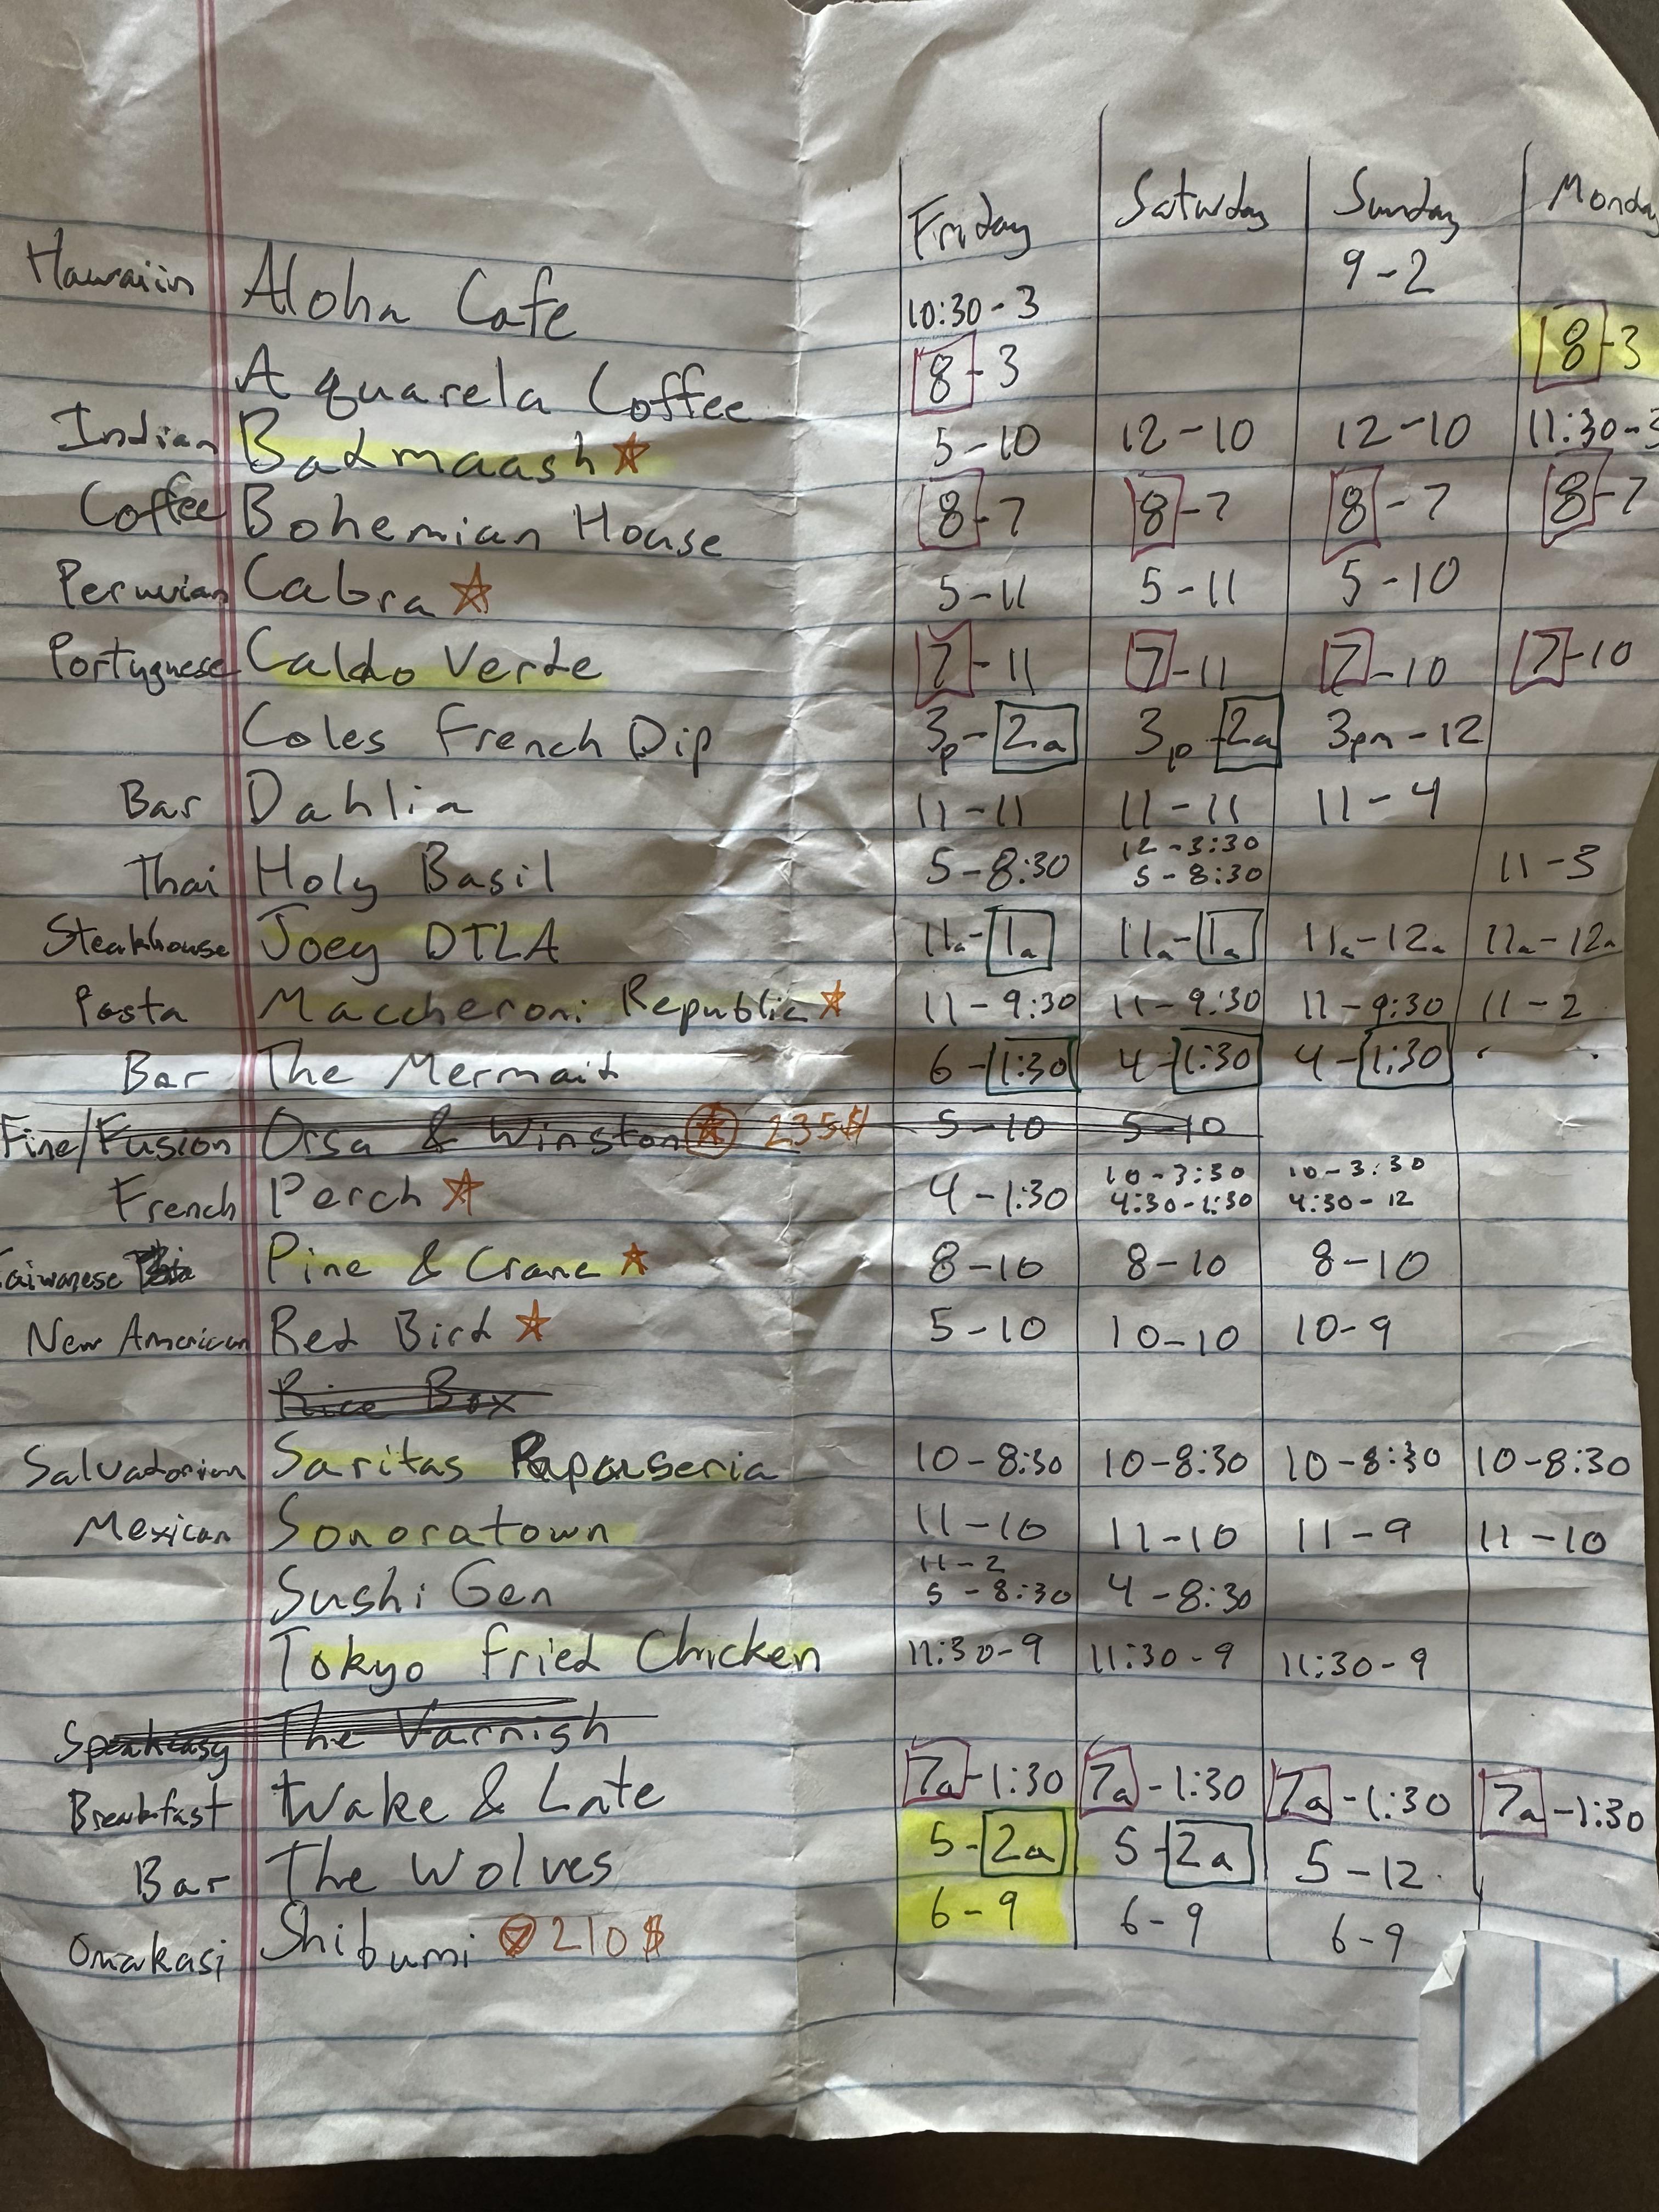 Friday Saturday Sunday Monday
Hawaiiin Aloha Cafe 10:30 - 3 9 - 2
Aquarela Coffee 8 - 3 8 - 3
Indian Badmaash 5 - 10 12 - 10 12 - 10 11:30 - 3
Coffee Bohemian House 8 - 7 8 - 7 8 - 7 8 - 7
Peruvian Cabra 5 - 11 5 - 11 5 - 10
Portugnese Caldo Verde 7 - 11 7 - 11 7 - 10 7 - 10
Coles French Dip 3p - 2a 3p - 2a 3pm - 12
Bar Dahlia 11 - 11 11 - 11 11 - 4
Thai Holy Basil 5 - 8:30 12 - 3:30 5 - 8:30 11 - 3
Steakhouse Joey DTLA 11a - 1a 11a - 1a 11a - 12a 11a - 12a
Pasta Maccheroni Republic 11 - 9:30 11 - 9:30 11 - 9:30 11 - 2
Bar The Mermaid 6 - 1:30 4 - 1:30 4 - 1:30
Fine/Fusion Orsa & Winston 235$ 5 - 10 5 - 10
French Perch 4 - 1:30 10 - 3:30 4:30 - 1:30 10 - 3:30 4:30 - 12
Taiwanese Pine & Crane 8 - 10 8 - 10 8 - 10
New American Red Bird 5 - 10 10 - 10 10 - 9
Rice Box
Salvadorian Saritas Papouseria 10 - 8:30 10 - 8:30 10 - 8:30 10 - 8:30
Mexican Sonoratown 11 - 10 11 - 10 11 - 9 11 - 10
Sushi Gen 11 - 2 5 - 8:30 4 - 8:30
Tokyo Fried Chicken 11:30 - 9 11:30 - 9 11:30 - 9
Speakeasy The Varnish
Breakfast Wake & Late 7a - 1:30 7a - 1:30 7a - 1:30 7a - 1:30
Bar The Wolves 5 - 2a 5 - 2a 5 - 12
Omakasi Shibumi 210$ 6 - 9 6 - 9 6 - 9